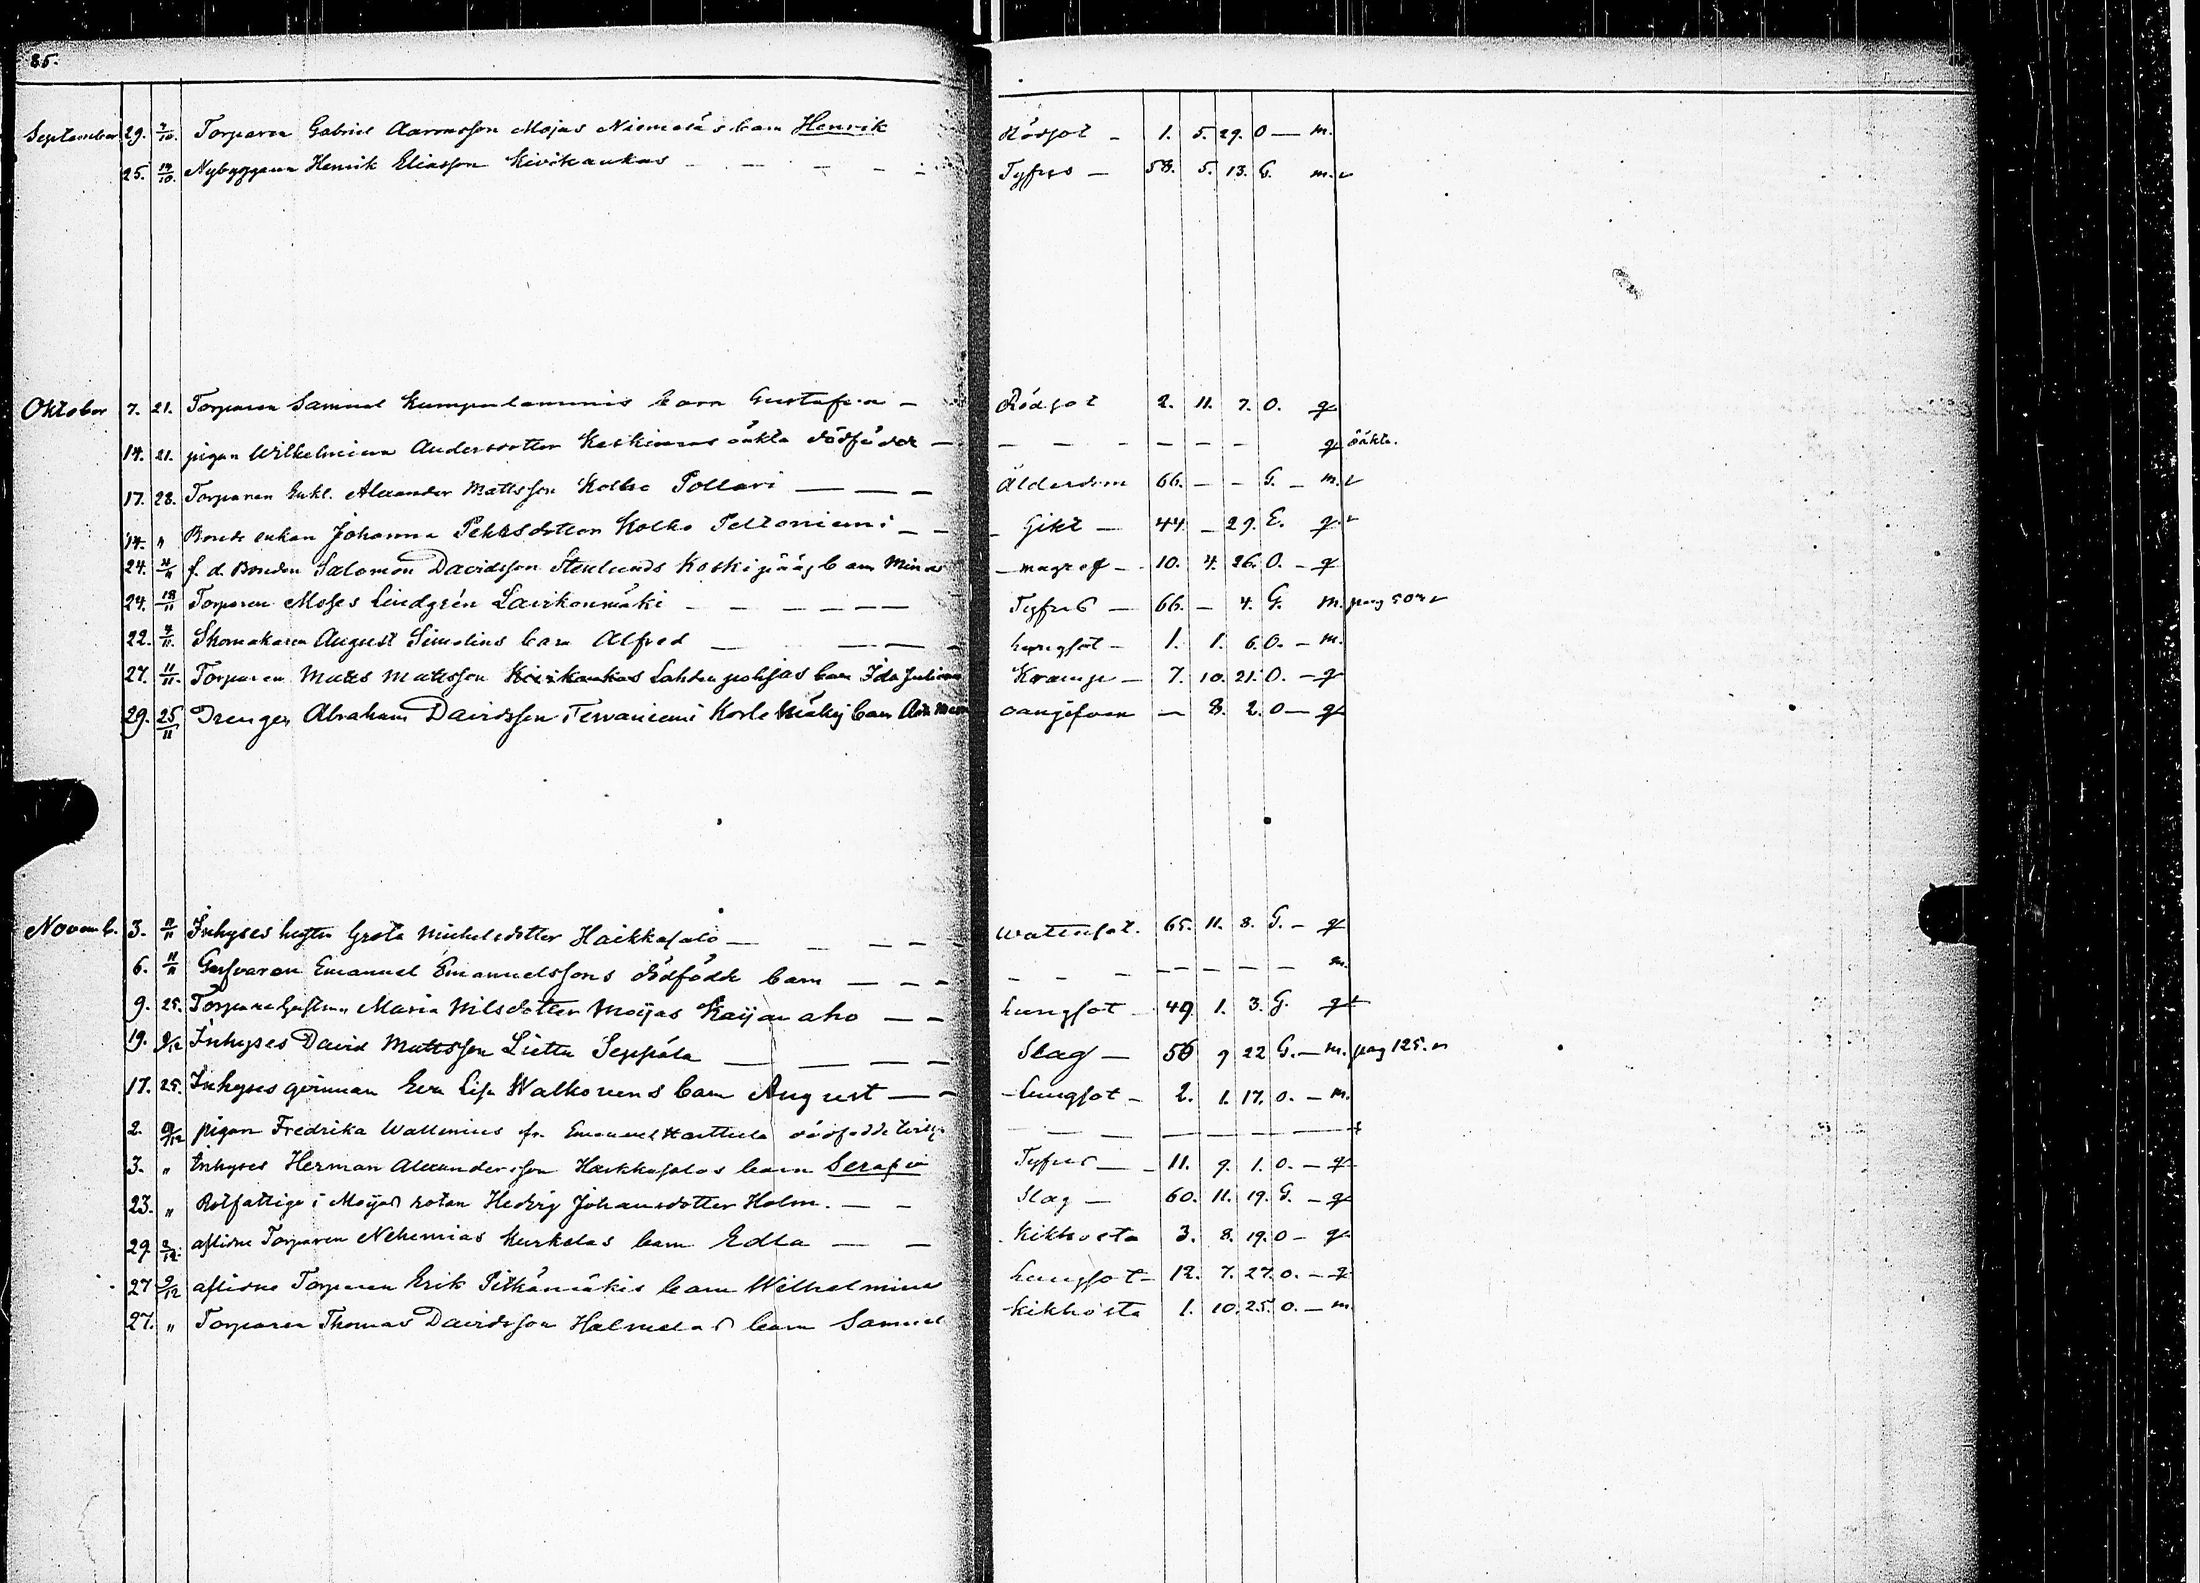 85.
September 29. 7/10. Torparen Gabriel Aaronsson Mojas Niemeläs barn Henrik Rödsot – 1. 5. 29. O – m.
25. 14/10. Nybyggaren Henrik Eliasson Kivikankas – – – – Tyfus – 58. 5. 13. G. m.
Oktober 7. 21. Torparen Samuel barn Gustafva – Rödsot 2. 11. 7. O. q
14. 21. pigan Wilhelmina Andersdotter oäkta dödfödde – – – – – – – q oäkta.
17. 28. Torparen Enkl. Alexander Mattsson Kolho Pollari – – – Ålderdom 66. – – G. – m.
14. " Bonde enkan Johanna Pehrsdotter Kolho Peltoniemi – – Gikt – 44. – 29. E. q.
24. 4/11 f. d. Bonden Salomon Davidsson Stenlunds Koskipääs barn Minas – magref – 10. 4. 26. O. – q
24. 18/11 Torparen Moses Lindgrén Lavikonmäki – – – – – Tyfus – 66. – 4. G. m. pag 504
22. 4/11. Skomakaren August Simelius barn Alfred – – – – Lungsot – 1. 1. 6. O. – m.
27. 11/11. Torparen Matts Mattsson Kivikankas Lahdenpohjas barn Ida Juliana Kramp – 7. 10. 21. O. – q
29. 25/11 Drengen Abraham Davidsson Tervaniemi barn oangifven – 8. 2. O – q
Novemb. 3. 11/11 Inhyses Greta Michelsdotter Haikkasalo – – – – Wattusot. 65. 11. 8. G. – q
6. 11/11 Emanuel Emanuelssons dödfödde barn – – – – – – – – – – – m.
9. 25. Maria Nilsdotter Moijas Kaijanaho – – Lungsot – 49 1. 3. G. q
19. 9/12 Inhyses David Mattsson Lietta Seppälä – – – – Slag – 56 9 22 G. – m. pag 125.
17. 25. Inhyses qvinnan Eva Lisa Walkonens barn August – – Lungsot – 2. 1. 17. O. – m.
2. 9/12 pigan Fredrika Wallenius fr. Emanuel Harttula dödfödde – – – – – – –
3. " Inhyses Herman Alexandersson Haikkasalos barn Serafia Tyfus – 11. 9. 1. O. – q
23. " Rotfattige i Moijas rotan Hedvig Johansdotter Holm. – – Slag – 60. 11. 19. G. – q
29. 2/12. aflidne Torparen Nehemias Kurkelas barn Edla – – Kikhosta 3. 8. 19. O – q
27 9/12 aflidne Torparen Erik Pitkämäkis barn Wilhelmina Lungsot – 12. 7. 27. O. – q
27. " Torparen Thomas Davidsson Halmelas barn Samuel Kikhosta 1. 10. 25. O. – m.